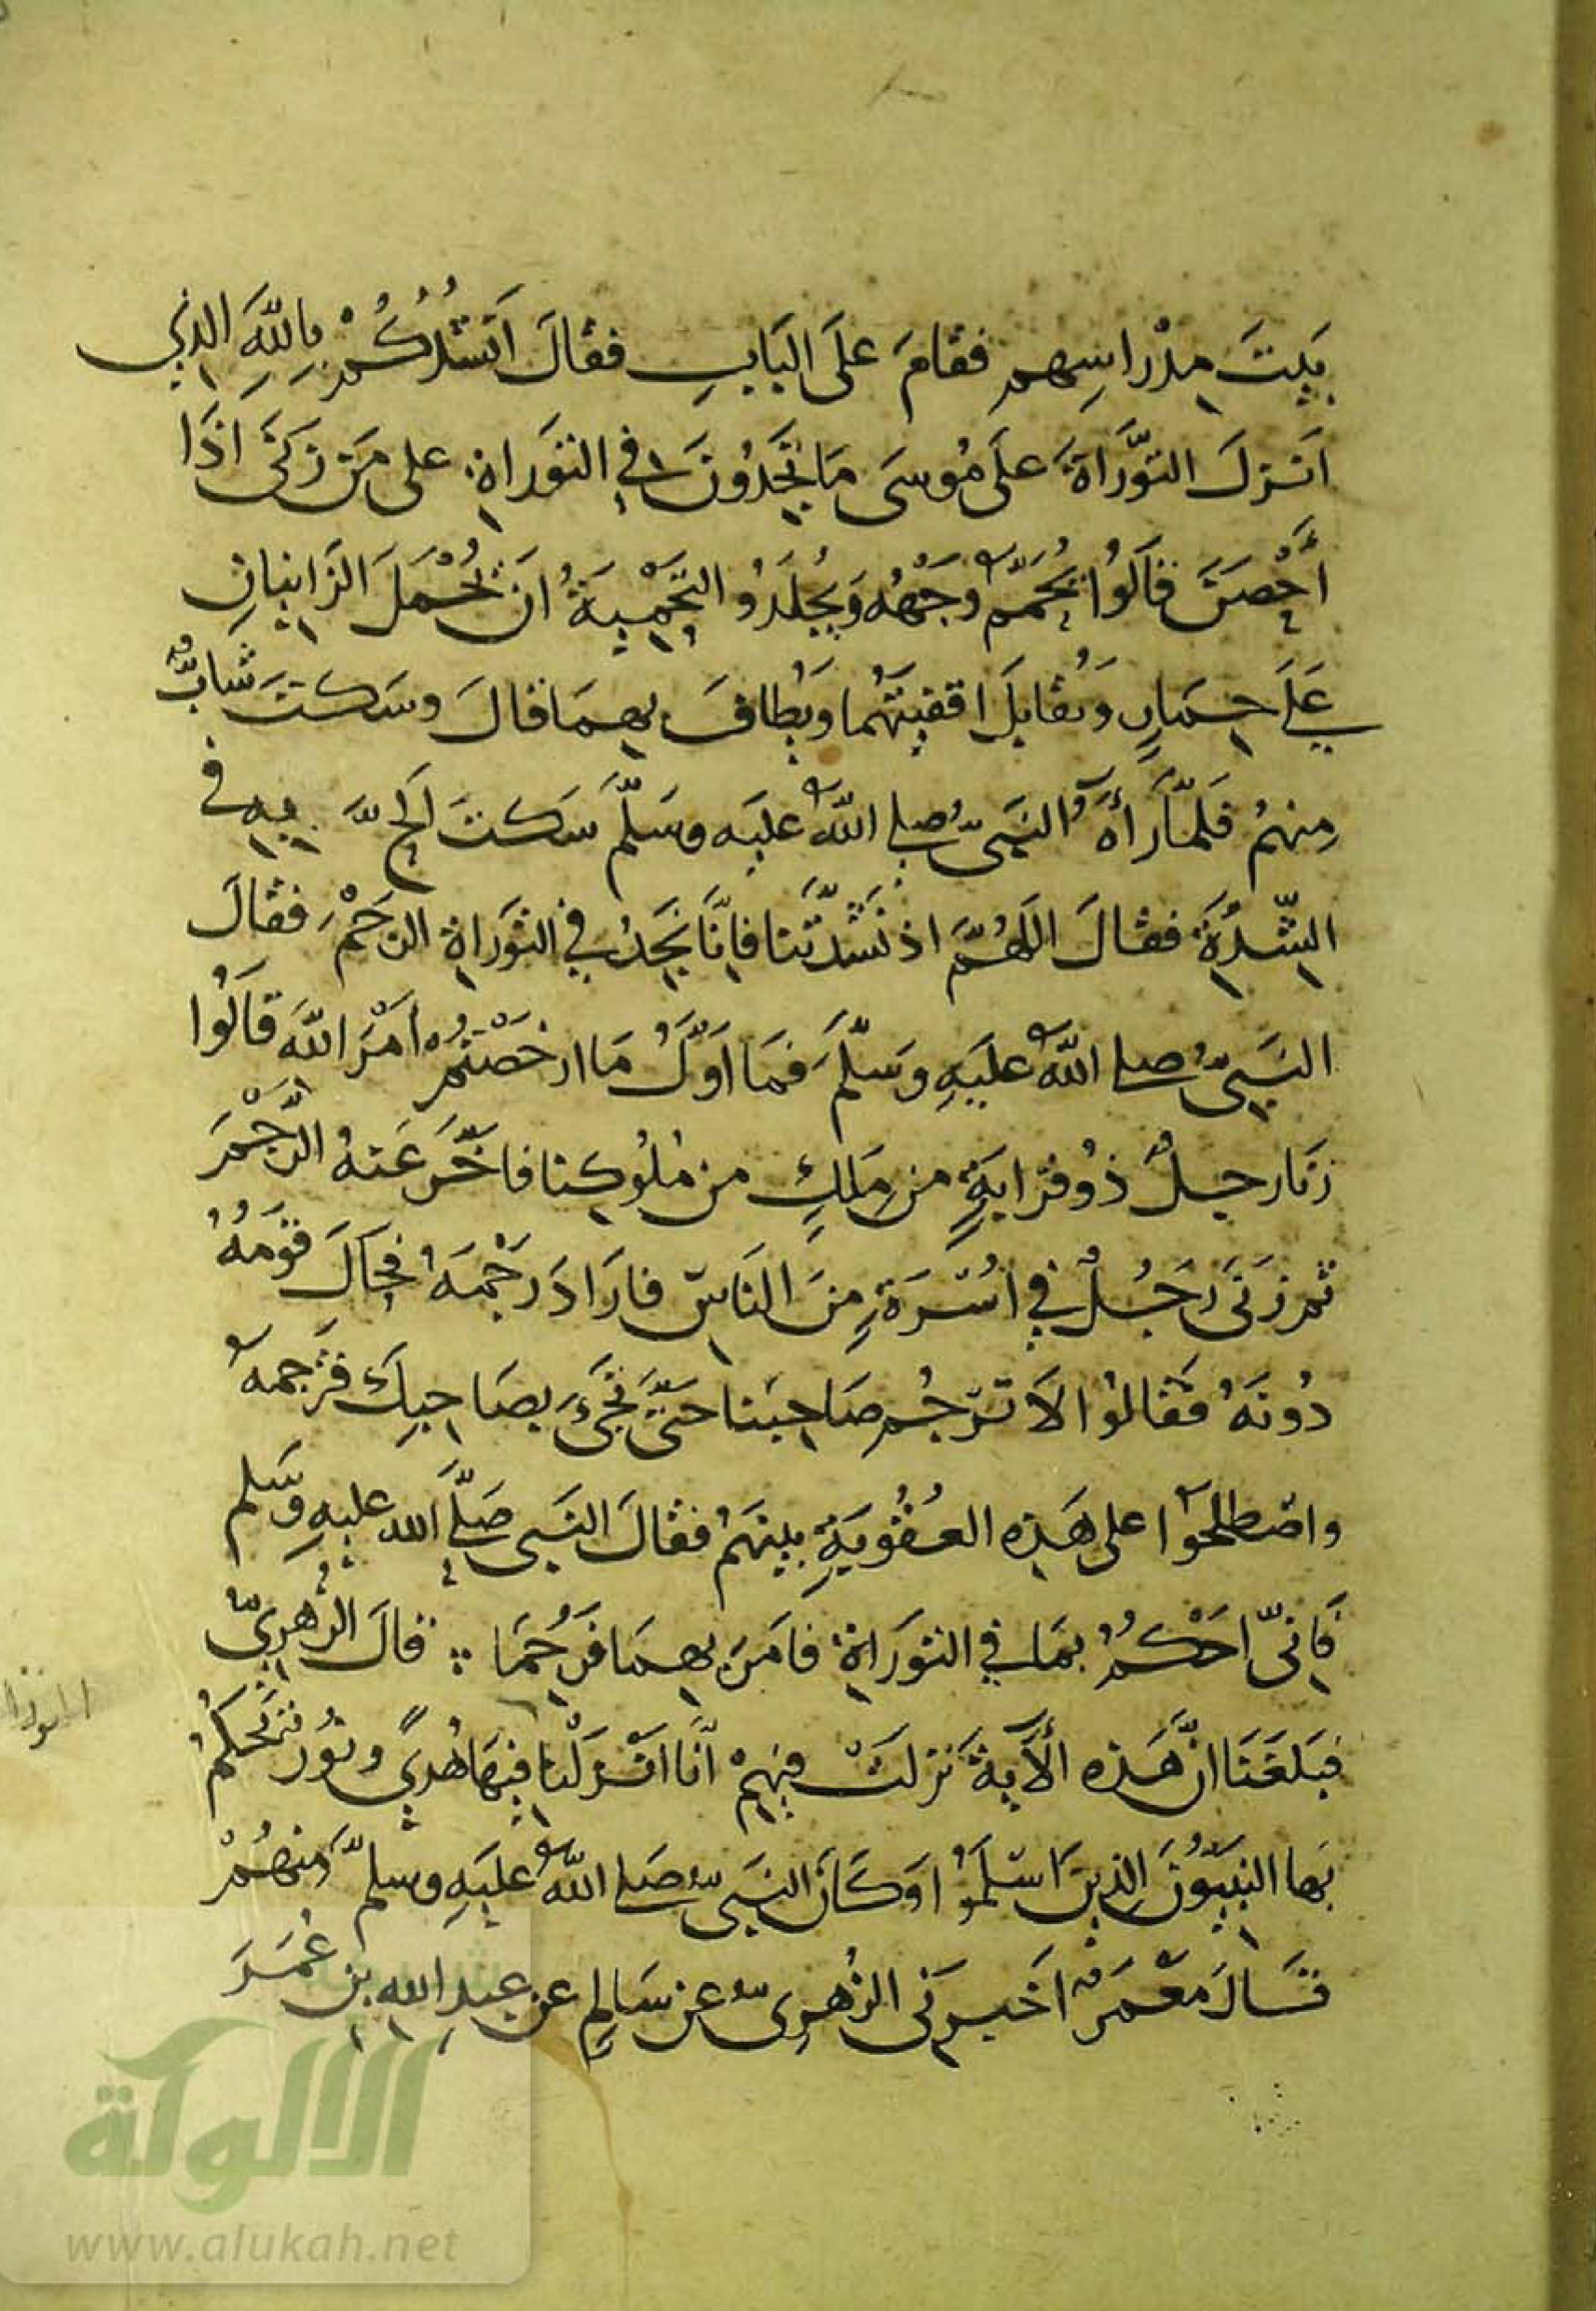 بَيتَ مِدْرَاسِهِمْ فقامَ عَلَى البَابِ فقالَ أَنْشُدُكُمْ بِاللَّهِ الذِي
انزلَ التَّوراةَ عَلَى مُوسَى مَا تَجِدُونَ في التورَاةِ على مَن زَنَى اذَا
أُحْصِنَ قَالُوا يُحَمَّمُ وَجْهُهُ وَيُجْلَدُ والتَّحْمِيَةُ أنْ يُحْمَلَ الزَّانِيانِ
عَلَى حِمَارٍ وَتُقَابَلَ اقفِيَتُهُما وَيُطَافَ بِهِمَا قالَ وَسَكتَ شَابٌّ
مِنهُمْ فَلمَّا رَأَهُ النَبِيُّ صلى اللهُ عليه وسَلَّمَ سَكتَ فِي
النِّشْدَةِ فقالَ اللهُمَّ اذ نَشَدْتَّنَا فإنَّا نَجِدُ في التَّورَاةِ الرَّجْمَ فقالَ
النَبِيُّ صلى اللهُ عليهِ وسَلَّمَ فَمَا اوَّلُ مَا ارخَصْتُمْ أمْرَ اللَّهِ قَالُوا
زنَا رجلٌ ذُو قرَابَةٍ من مَلِكٍ من مُلُوكِنا فاخَّرَ عَنهُ الرَّجْمَ
ثم زَنَى رَجُلٌ في اسْرَةٍ مِنَ النَاسِ فارَادَ رَجْمَهُ فحَالَ قَوْمُهُ
دُونَهُ فقالُوا لا تَرْجُم صَاحِبَنا حَتَّى تَجِيَ بصَاحِبِكَ فترجمهُ
واصْطلحَوا على هَذِهِ العُقُوبَةِ بينَهُمْ فقالَ النَبِي صَلَّى الله عليهِ وسَلم
فَإنِّي احْكُمُ بمَا في التورَاةِ فامَرَ بِهِمَا فرُجِمَا قالَ الزُّهْرِيُّ
فبَلغَنَا انَّ هَذِه الآيَةَ نزلَتْ فِيهِمْ انَّا انْزَلْنا فيهَا هُدىً ونُورٌ يَحكُمُ
بهَا النَّبِيُّونَ الذِينَ اسْلَمُوا وَكَانَ النَبِيُّ صَلى اللهُ عَليهِ وسلمَّ مِنهُمْ
قالَ مَعْمَرٌ اخْبرَنِي الزُّهرِيُّ عن سَالِمٍ عَن عبدِ اللهِ بنِ عُمَرَ
الالوكة
www.alukah.net